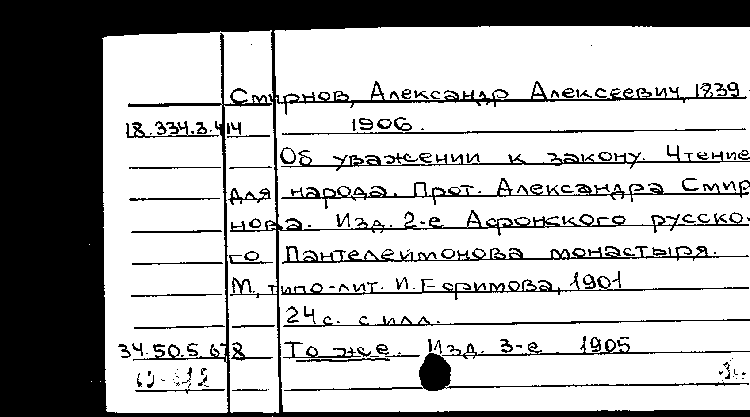 Смирнов, Александр Алексеевич, 1839-
18.334.3.414 1906.
Об уважении к закону. Чтение
для народа. Прот. Александра Смир
нова. Изд. 2-е Афонского русско-
го Пантелеймонова монастыря.
М., типо-лит. И. Ефимова, 1901
24 с. с илл.
34.50.5.678 То же. Изд. 3-е 1905